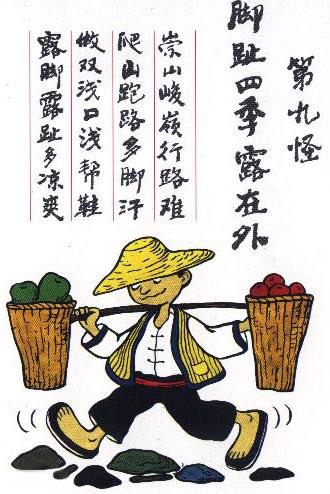 第九怪
脚趾四季露在外
崇山峻嶺行路难
爬山跑路多脚汗
做双浅口浅帮鞋
露脚露趾多凉爽